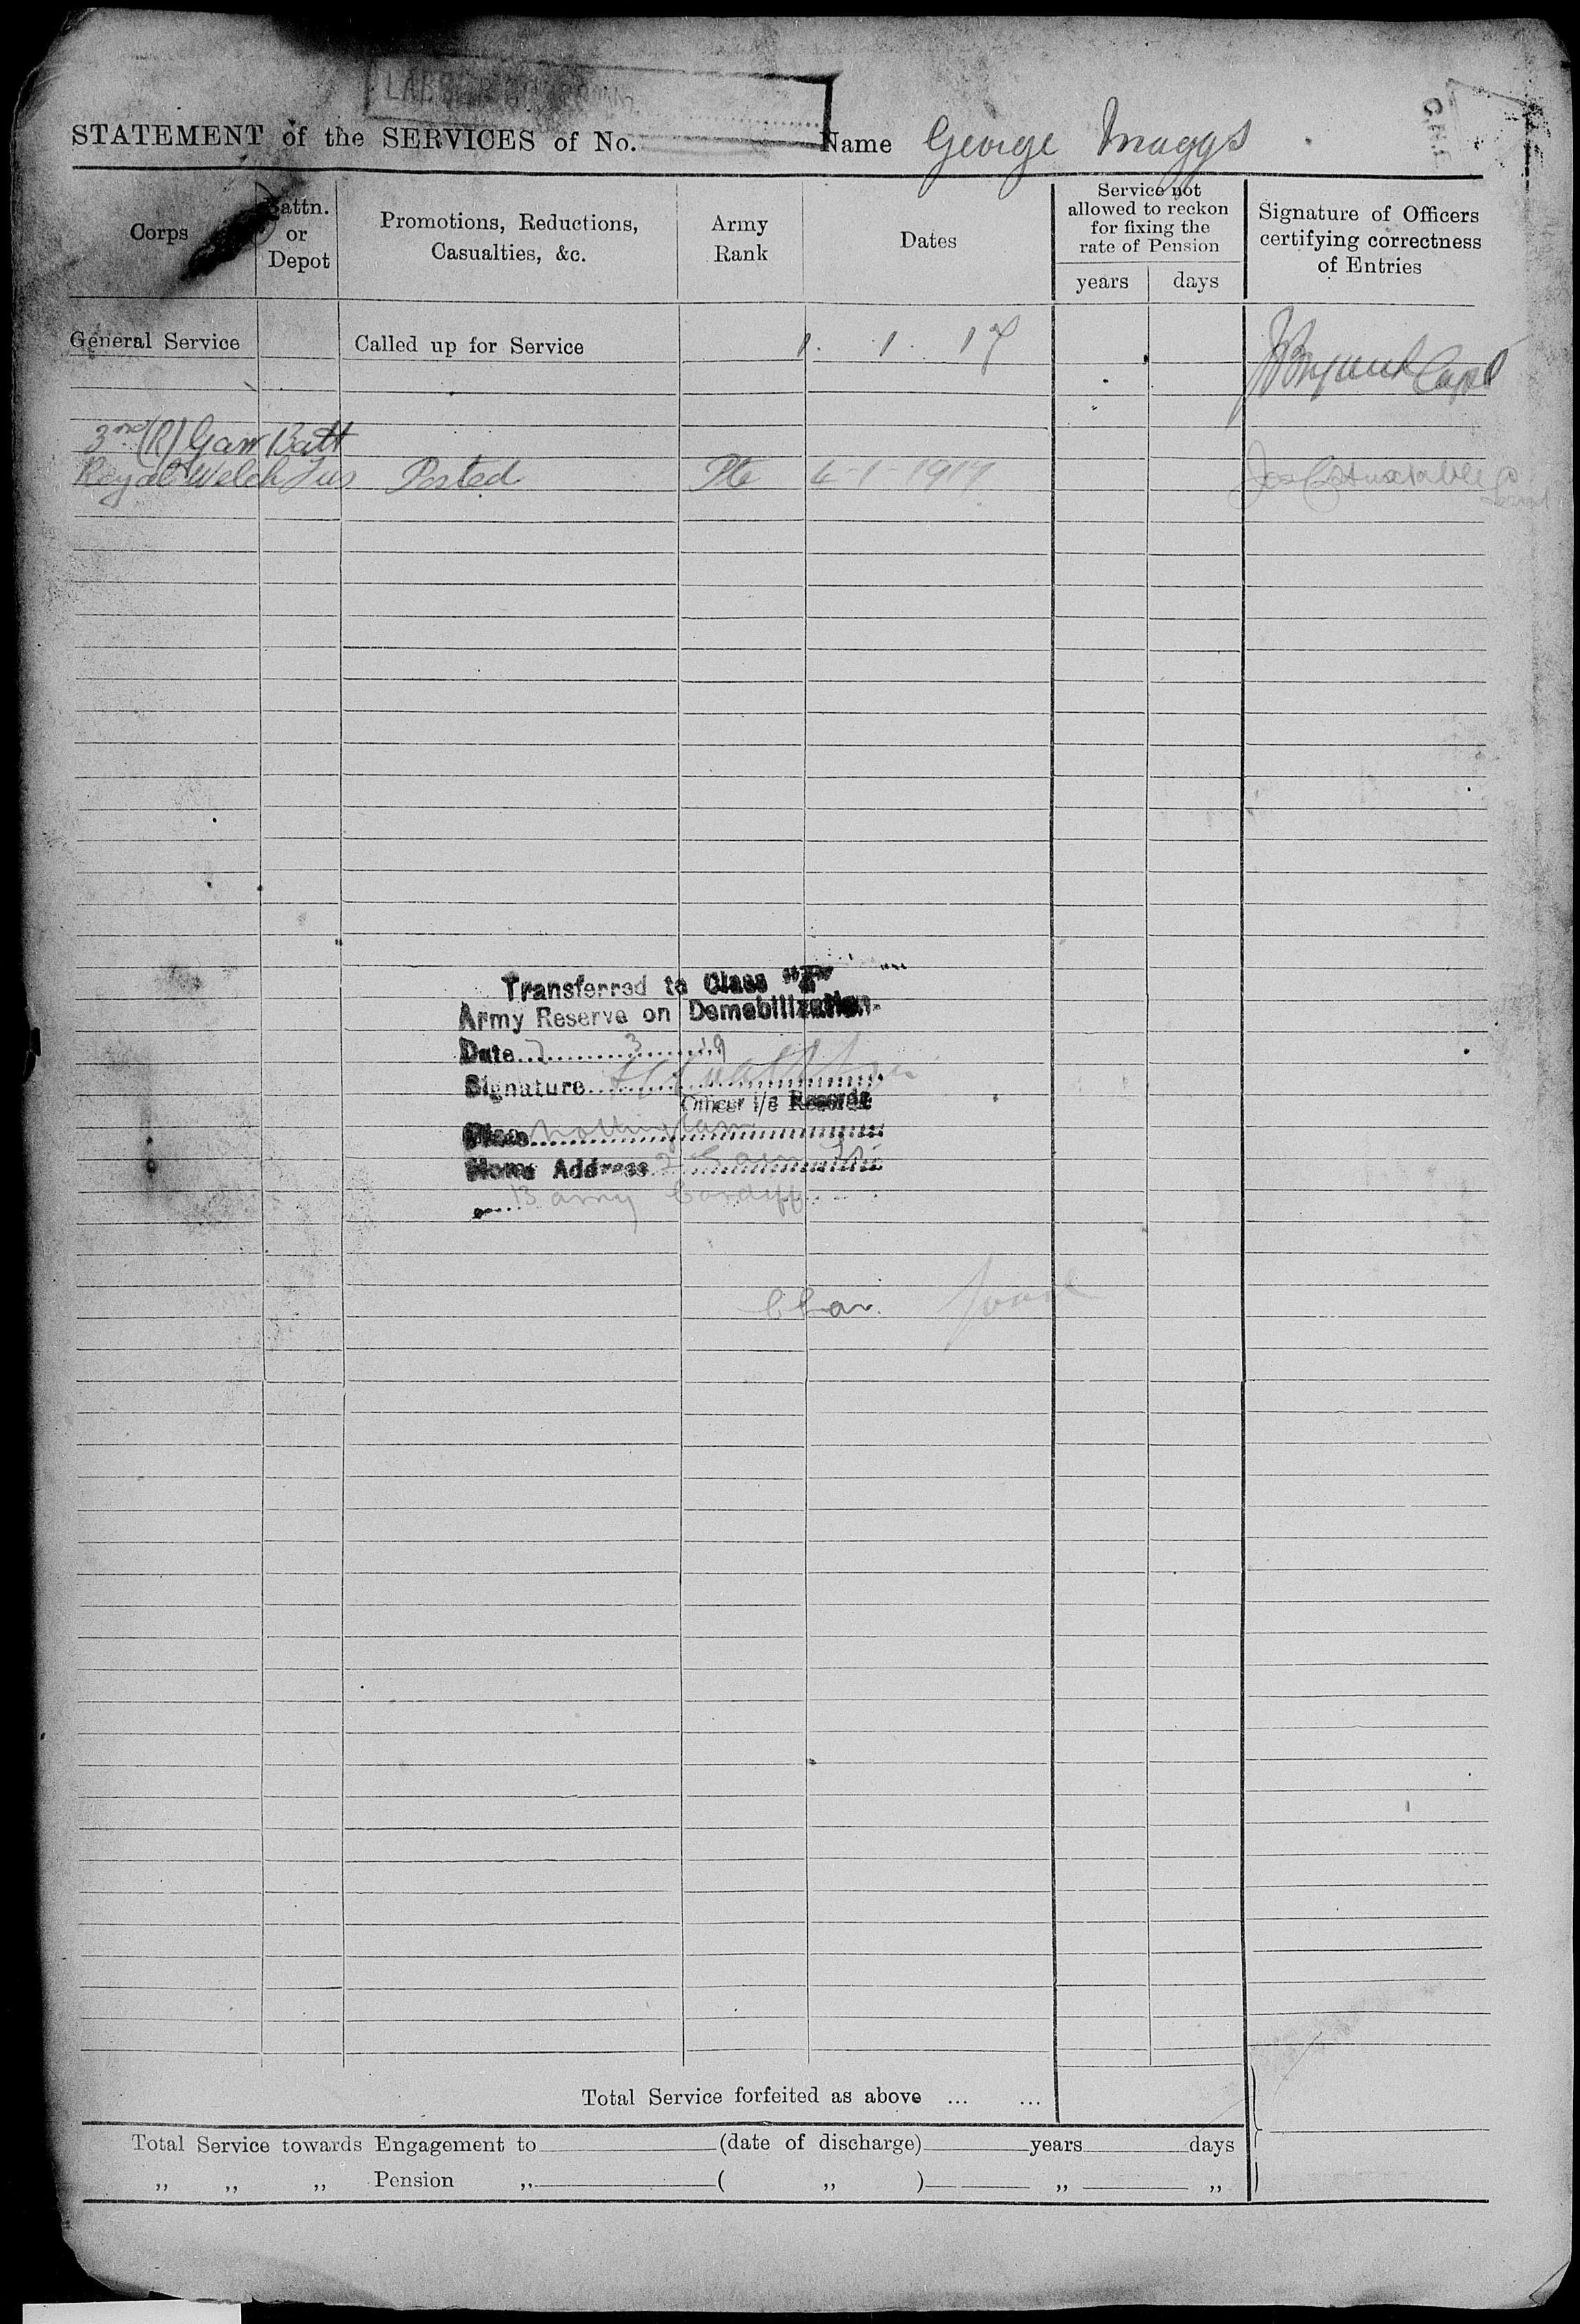 LABOUR
STATEMENT of the SERVICES of No. Name George Maggs
Corps
Battn. or Depot
Promotions, Reductions, Casualties, &c.
Army Rank
Dates
Service not allowed to reckon for fixing the rate of Pension
years days
Signature of Officers certifying correctness of Entries
General Service Called up for Service 1. 1. 17 Capt
3rd (R) Garr Batt
Royal Welch Fus Posted Pte 4 1 1917
Transferred to Class "Z"
Army Reserve on Demobilization.
Date 3 19
Signature
Officer i/c Records
Place Nottingham
Home Address
Barry Cardiff
Char. Good
Total Service forfeited as above ... ...
Total Service towards Engagement to (date of discharge) years days
„ „ „ Pension „ ( „ ) „ „